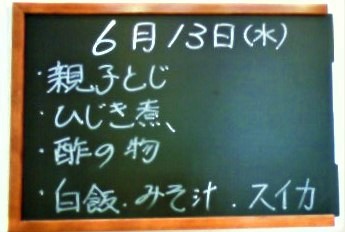 6月13日(水)
・親子とじ
・ひじき煮、
・酢の物
・白飯．みそ汁．スイカ